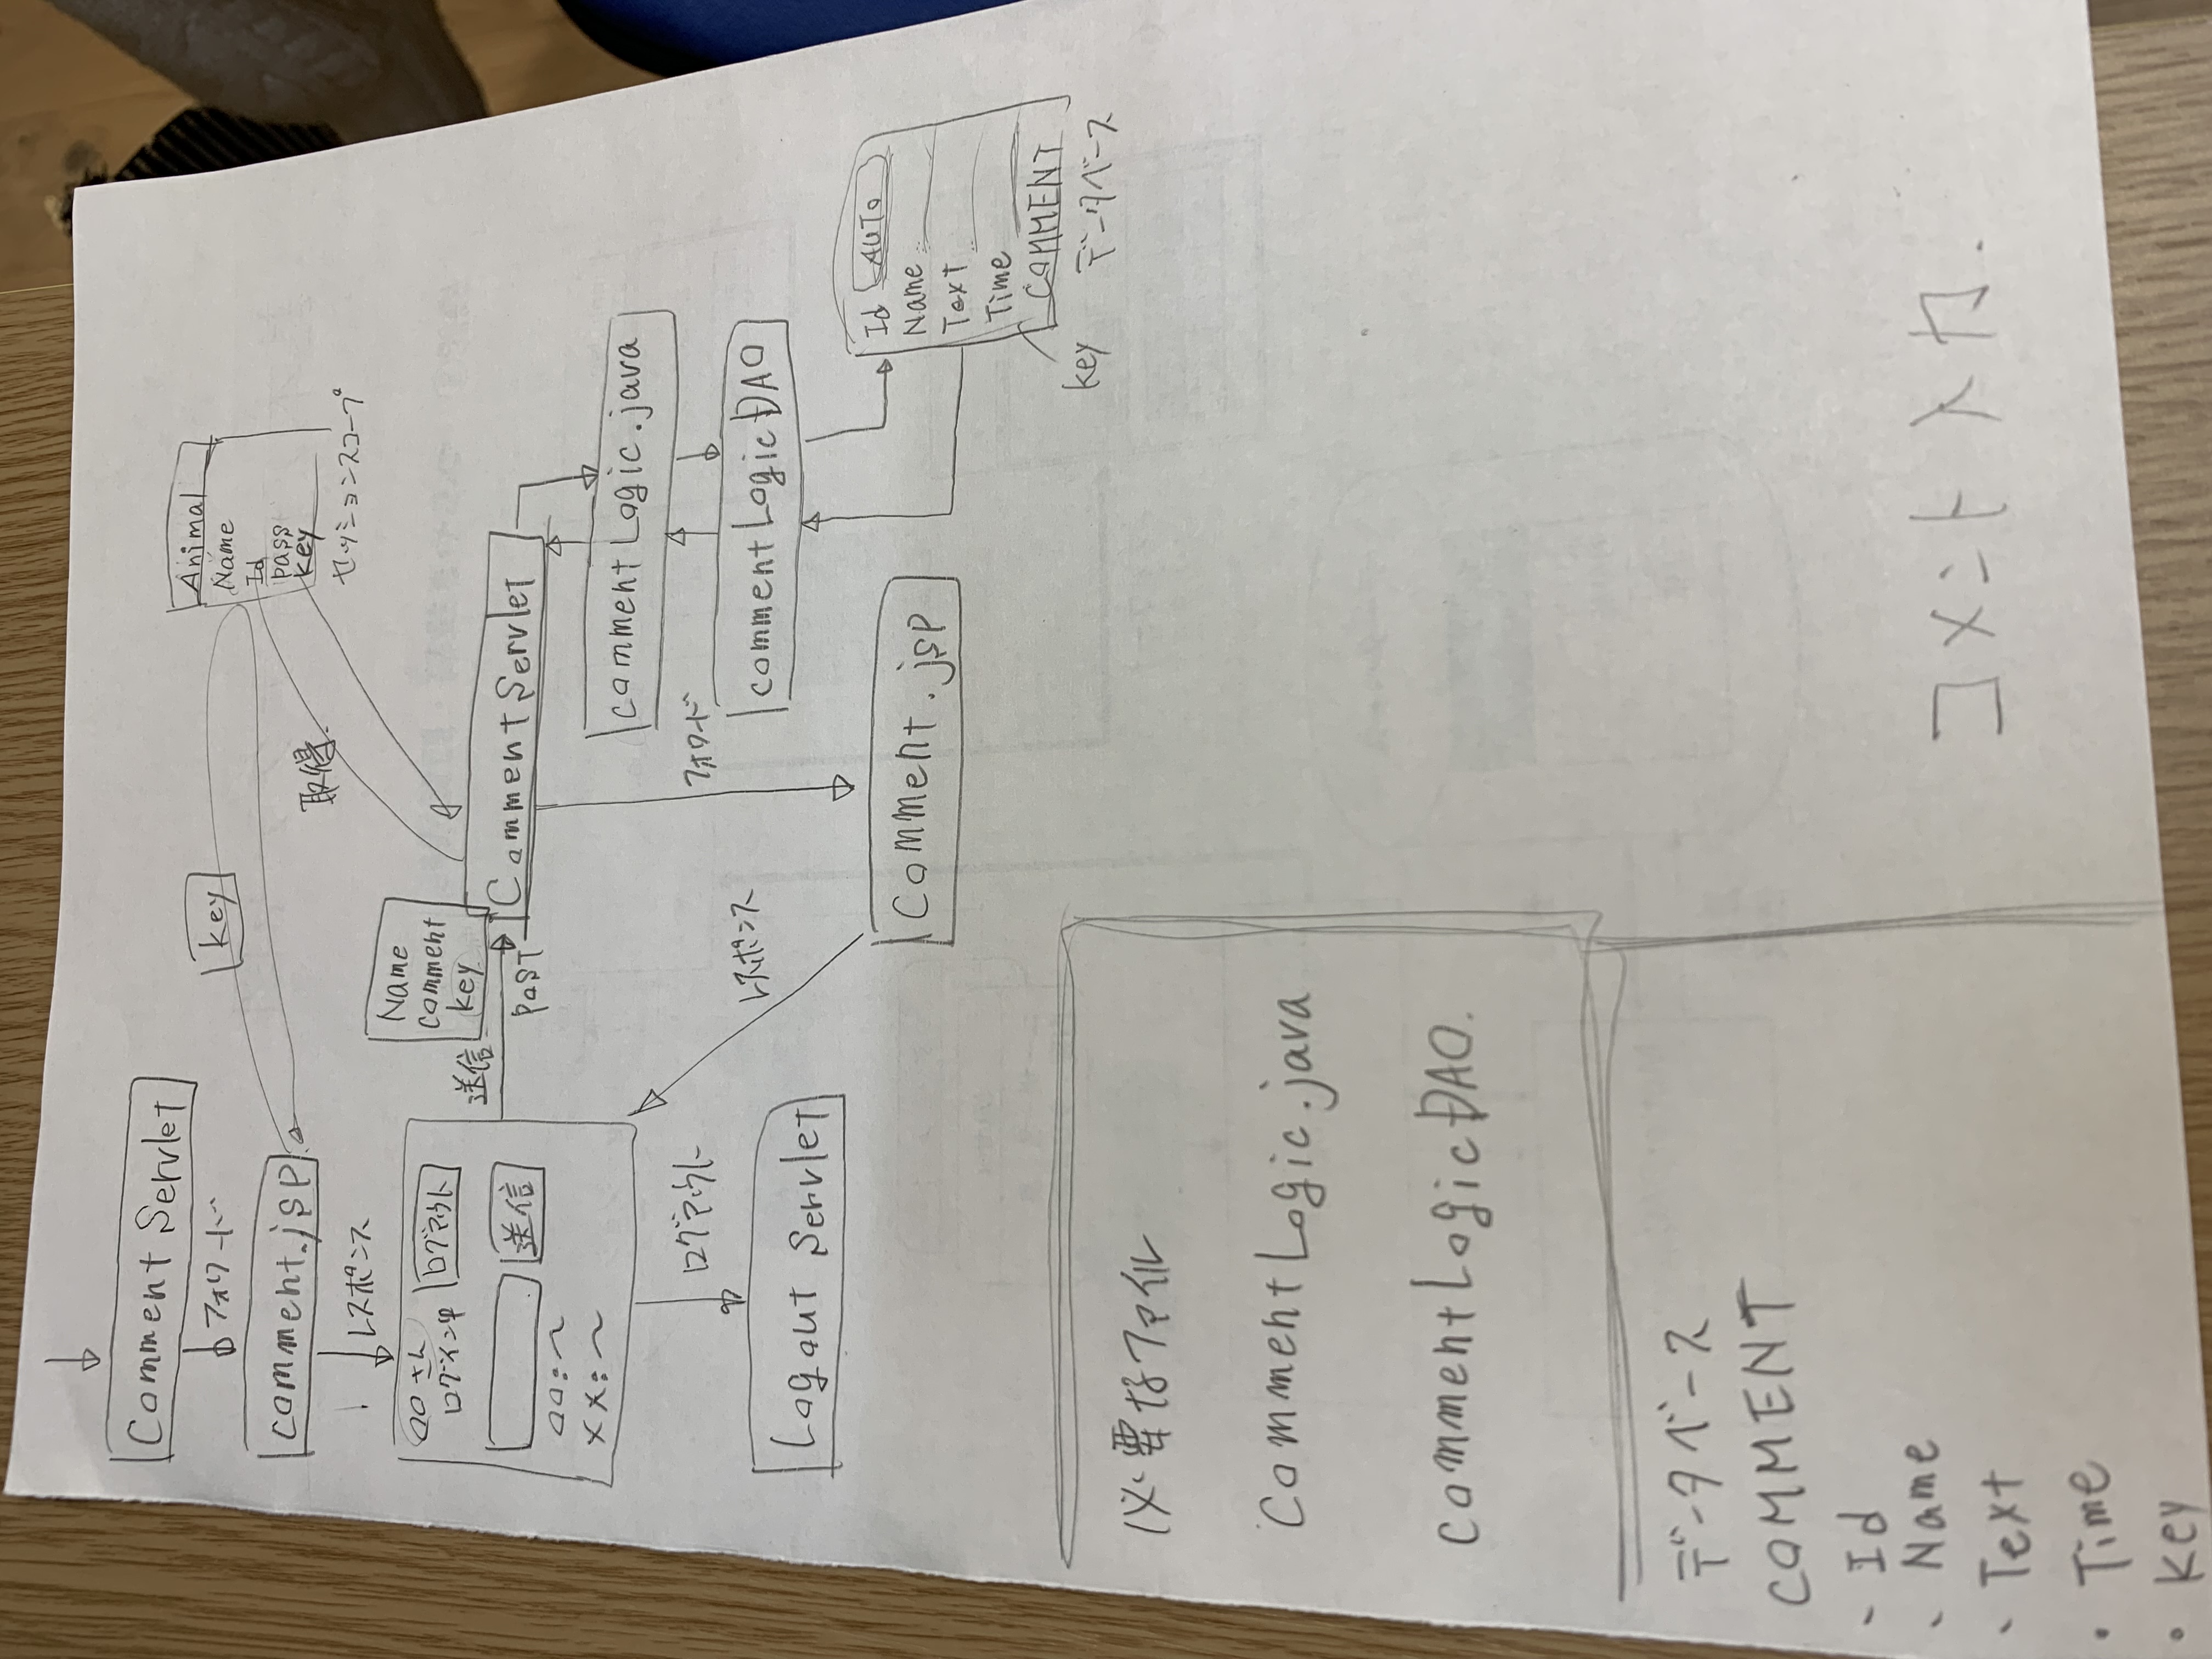 Comment Servlet
フォワード
comment.jsp
レスポンス
key
Animal
Name
Id
pass
key
セッションスコープ
取得
○○さん
ログイン中
ログアウト
送信
○○:~
××:~
送信
POST
Name
comment
key
Comment Servlet
commentLogic.java
commentLogicDAO
フォワード
レスポンス
ログアウト
Logout Servlet
Comment.jsp
Id AUTO
Name
Text
Time
COMMENT
key
データベース
必要なファイル
CommentLogic.java
commentLogicDAO.
データベース
COMMENT
・Id
・Name
・Text
・Time
・key
コメント入力.